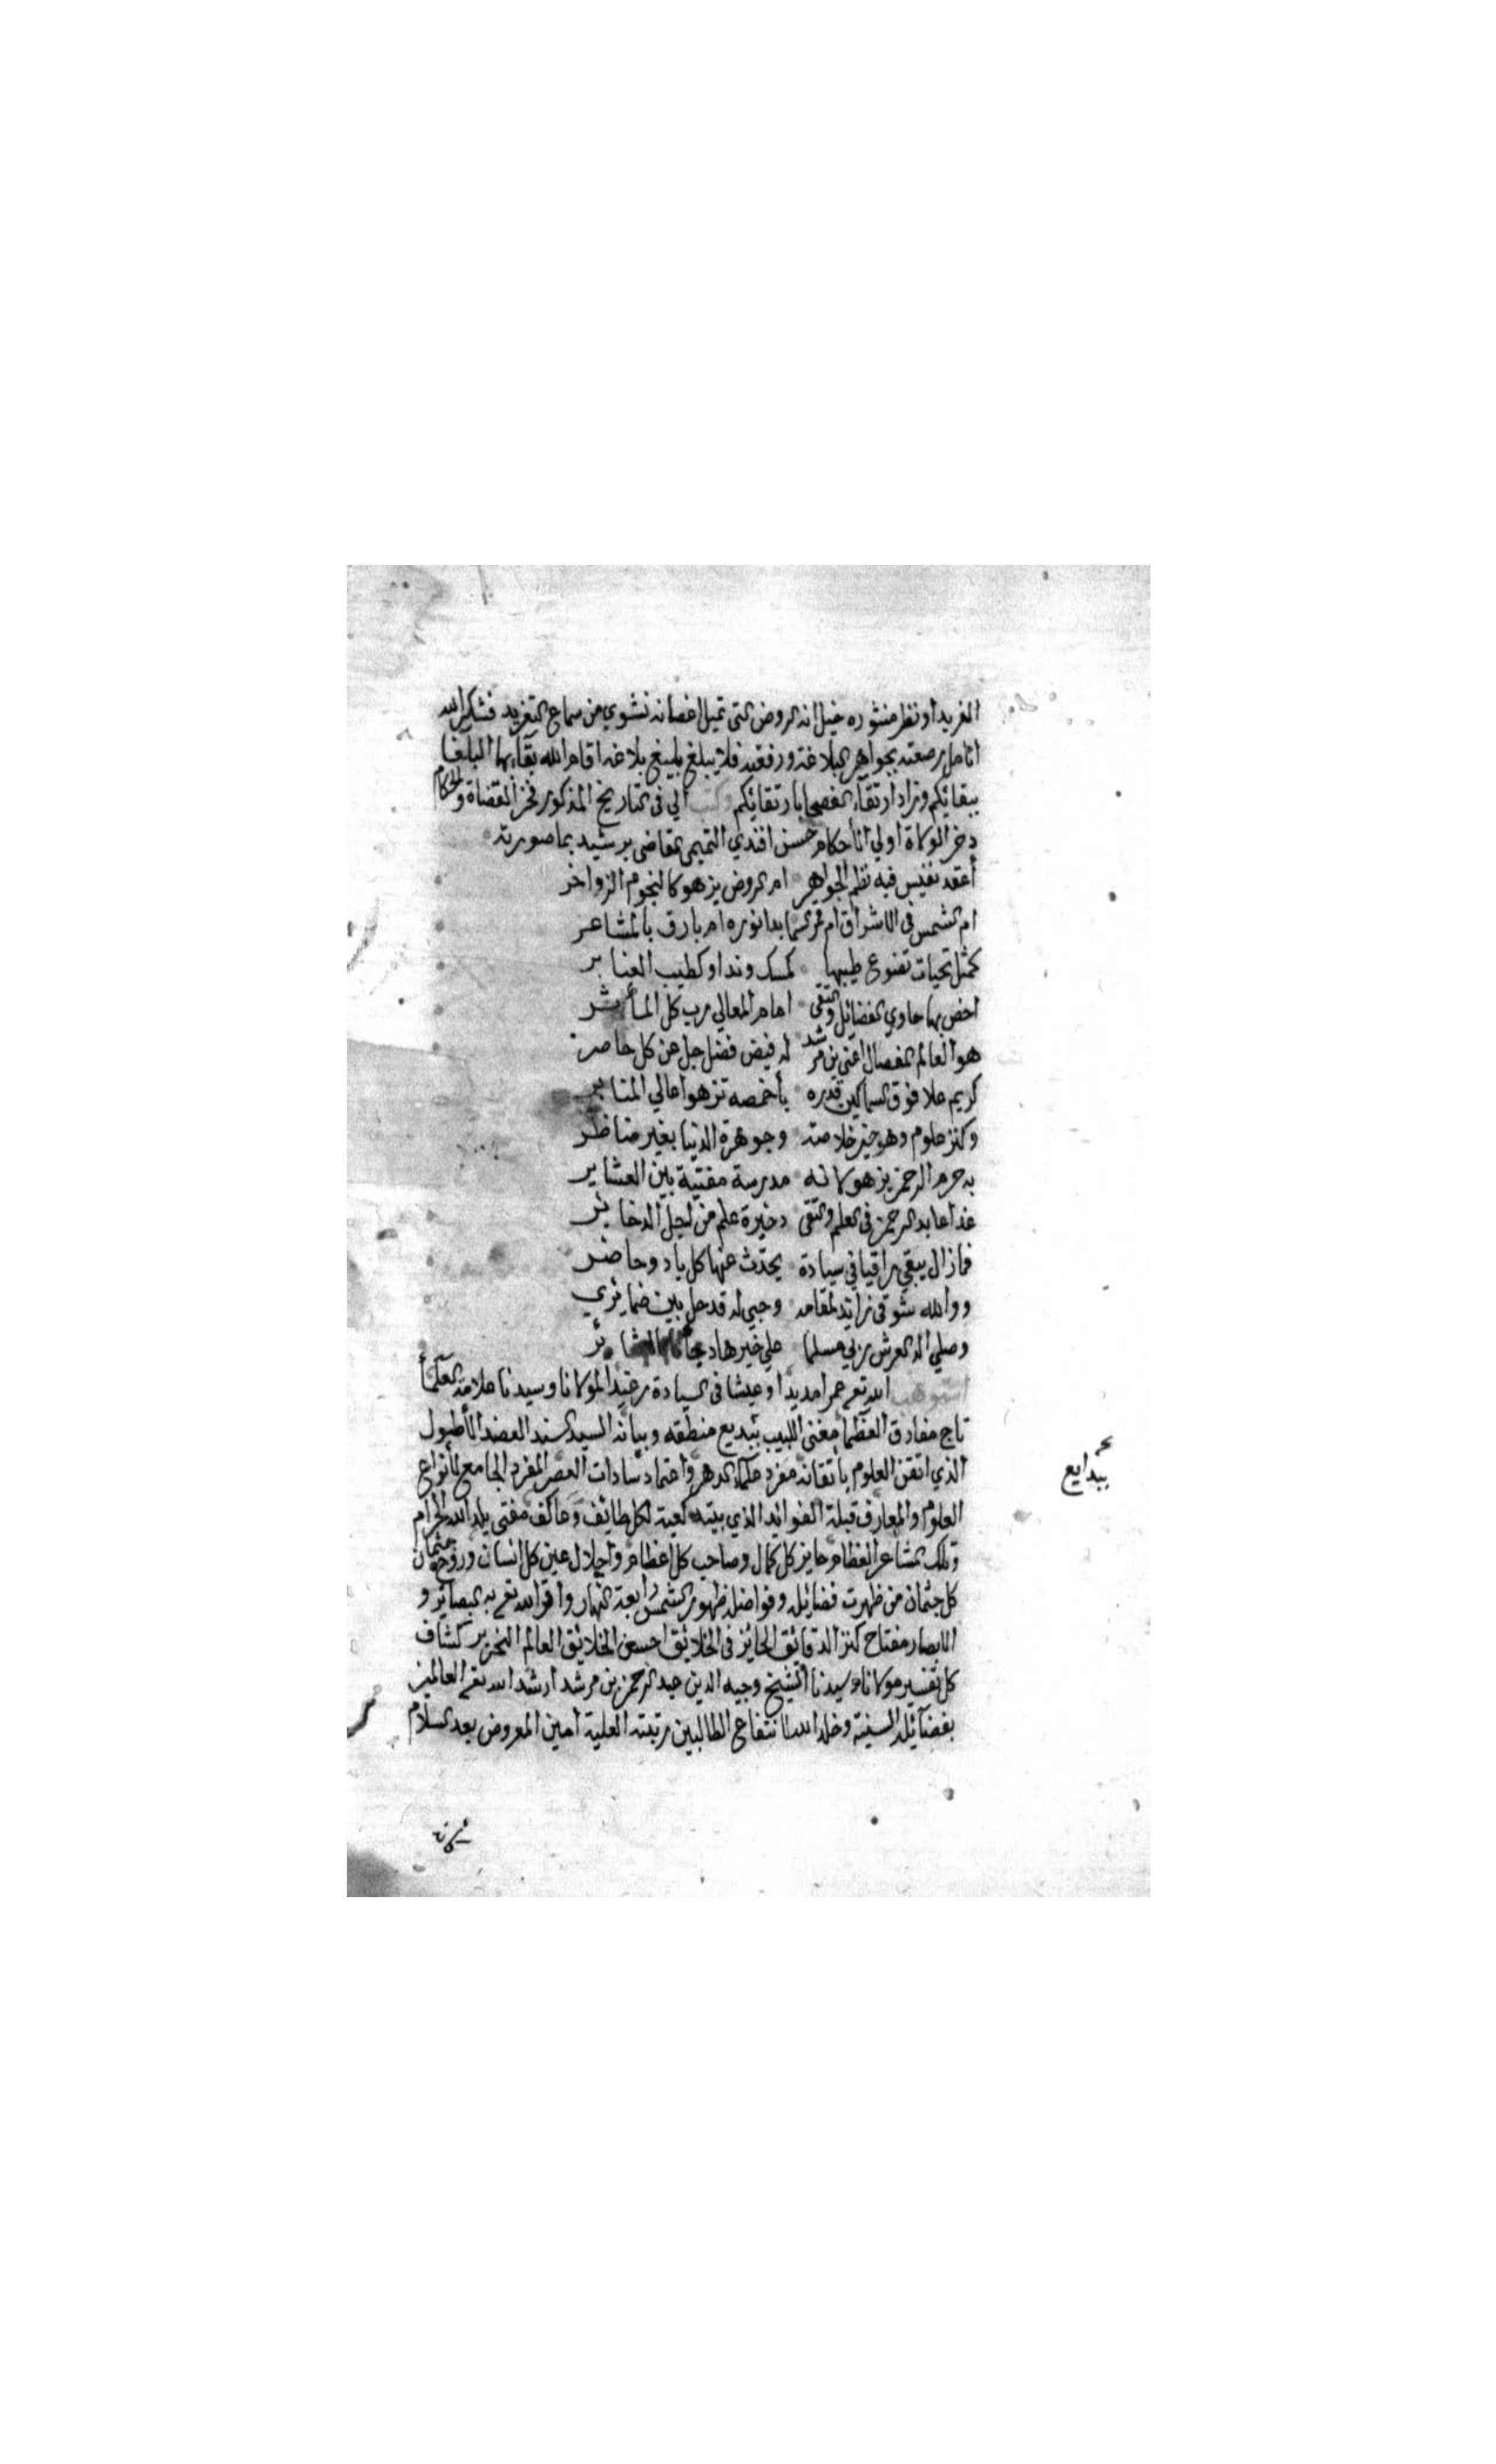 الغريد او نظر منثوره خيل انه الروض التى تميل اغصانه نشوي من سماع التغريد فشكر الله
انامل رصعته بجواهر البلاغة ورفعته فلا يبلغ بليغ بلاغه اقام الله بقاء بها البلغا
ببقائكم وزاد ارتقآء الفصحا بارتقائكم وكتب الي فى التاريخ المذكور فخر القضاة والحكام
ذخر الولاة اولي الأحكام حسن افندي التميمى القاضى برشيد بما صورته
أعقد نفيس فيه نظم الجواهر ام الروض يزهو كالنجوم الزواهر
ام الشمس فى الاشراق ام قمر السما بدا نوره ام بارق بالمشاعر
كمثل تحيات تضوع طيبها كمسك وند او كطيب العنابر
اخص بها حاوي الفضائل والتقى امام المعالي رب كل المأثر
هو العالم المفضال اعنى بن مرشد له فيض فضل جل عن كل حاصر
كريم علا فوق السماكين قدره بأخمصه تزهوا عالي المنابر
وكنز علوم وهو خير خلاصة وجوهرة الدنيا بغير مناظر
به حرم الرحمن يزهو لانه مدرسة مفتية بين العشاير
غدا عابد الرحمن فى العلم والتقى ذخيرة علم من اجل الذخائر
فما زال يبقي راقيا في سيادة يحدث عنها كل باد وحاضر
ووالله شوقى زايد لمقامه وحبي له قد حل بين ضمائري
وصلي اله العرش ربي مسلما علي خير هاد
استوهب الله تعـ عمرا مديدا وعيشا فى السيادة رغيدا لمولانا وسيدنا علامة العلمأ
تاج مفارق العظما مغنى اللبيب ببديع منطقه وبيانه السيد السند العضد الأطول
الذي اتقن العلوم باتقانه مفرد علمآء الدهر واعتماد سادات العصر المفرد الجامع لأنواع
العلوم والمعارف قبلة الفوائد الذي بيته كعبة لكل طائف وعاكف مفتى بلد الله الحرام
وتلك المشاعر العظام حايز كل كمال وصاحب كل اعظام واجلال عين كل انسان وروح جثمان
كل جثمان من ظهرت فضائله وفواضله ظهور الشمس رابعة النهار واقر الله تعـ به البصائر و
الابصار مفتاح كنز الدقائق الحائز فى الخلائق احسن الخلائق العالم النحرير كشاف
كل تفسير مولانا وسيدنا الشيخ وجيه الدين عبد الرحمن بن مرشد ارشد الله تعـ العالمين
بفضآئله السنية وخلد الله لانتفاع الطالبين رتبته العلية امين المعروض بعد السلام
ببدايع